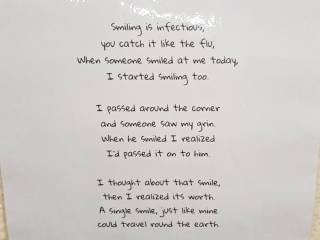 Smiling is infectious,
you catch it like the flu,
When someone smiled at me today,
I started smiling too.
I passed around the corner
and someone saw my grin.
When he smiled I realized
I'd passed it on to him.
I thought about that smile,
then I realized its worth.
A single smile, just like mine
could travel round the earth.